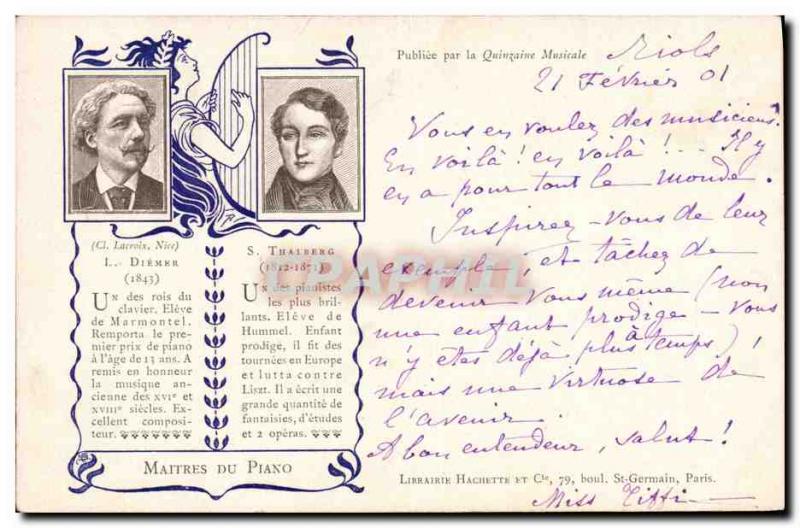 Publiée par la Quinzaine Musicale
Riols
21 Février 01
Vous en voulez des musiciens.
En voilà ! en voilà ! -- Il y
en a pour tout le monde.
Inspirez-vous de leur
exemple, et tâchez de
devenir vous même (non
une enfant prodige - vous
n'y êtes déjà plus à temps) !
mais une virtuose de
l'avenir.
A bon entendeur, salut !
Miss Tiffi
(Cl. Lacroix, Nice)
L. DIÉMER
(1843)
UN des rois du
clavier. Elève
de Marmontel.
Remporta le pre-
mier prix de piano
à l'âge de 13 ans. A
remis en honneur
la musique an-
cienne des XVIe et
XVIIIe siècles. Ex-
cellent composi-
teur.
S. THALBERG
(1812-1871)
UN des pianistes
les plus bril-
lants. Elève de
Hummel. Enfant
prodige, il fit des
tournées en Europe
et lutta contre
Liszt. Il a écrit une
grande quantité de
fantaisies, d'études
et 2 opéras.
MAITRES DU PIANO
LIBRAIRIE HACHETTE ET Cie, 79, boul. St-Germain, Paris.